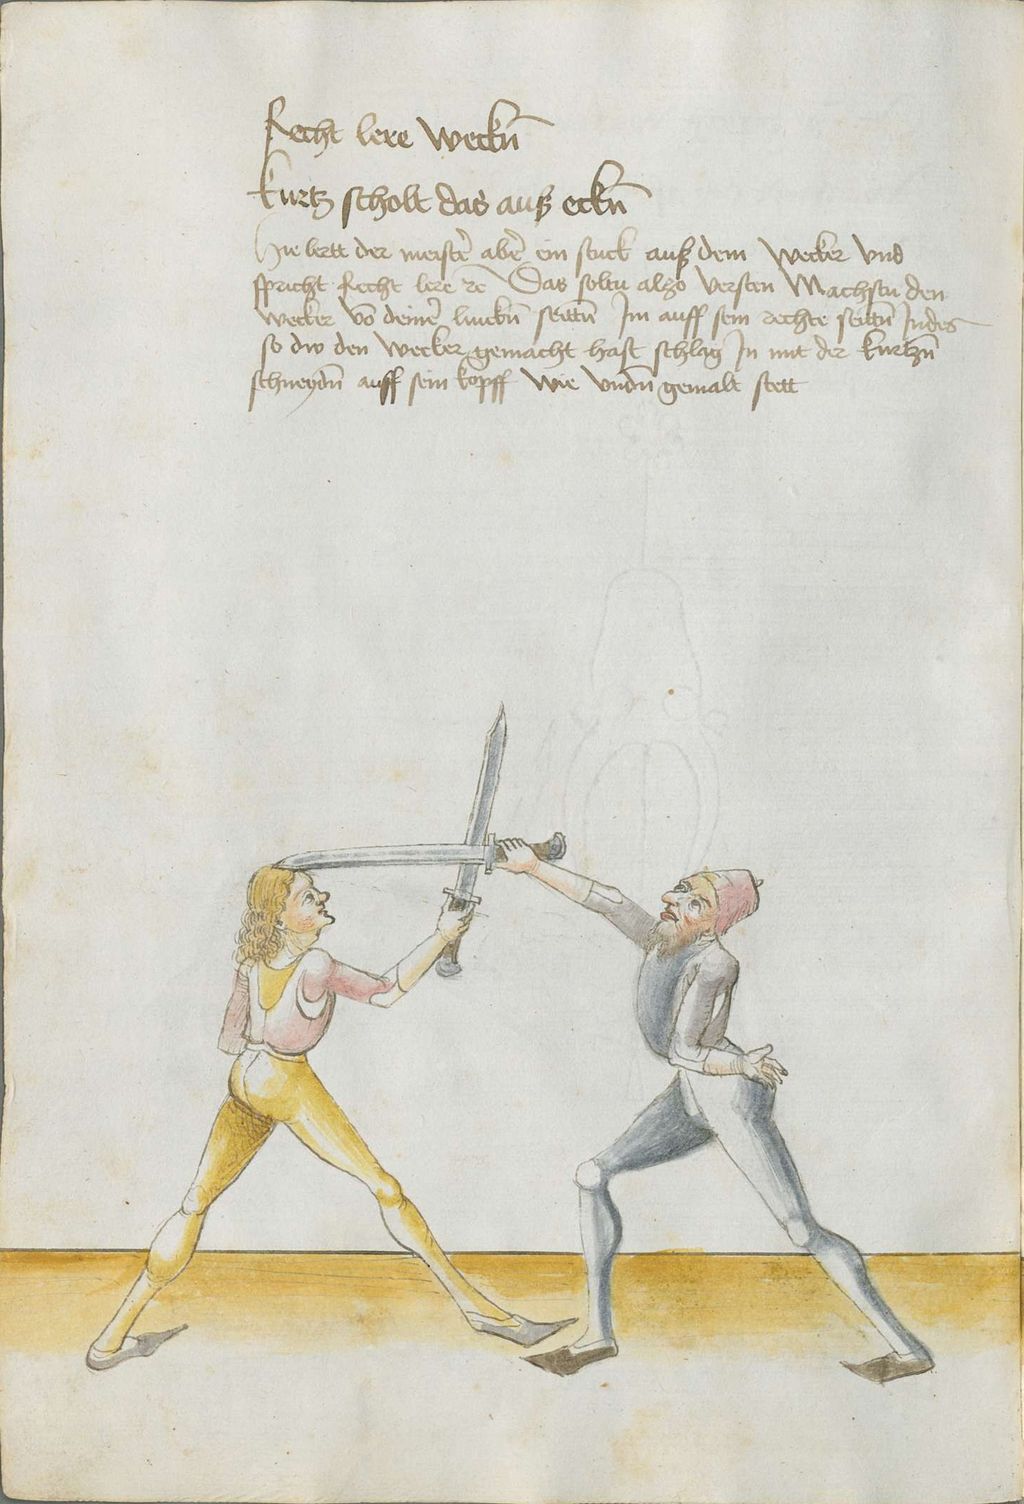 Recht lere weckn̄
kurtz scholt das auß eckn̄
Hie lertt der meistē abē ein stuck auß dem wecker vnd
spricht Recht lere ꝛē Das soltu also versten Machstu den
wecker vō deinē linckn̄ seittn̄ Im auff sein rechte seittn̄ Indes
so dw den wecker gemacht hast schlag In mit der kurtzn̄
schneydn̄ auff sein kopff wie vndn̄ gemalt stett